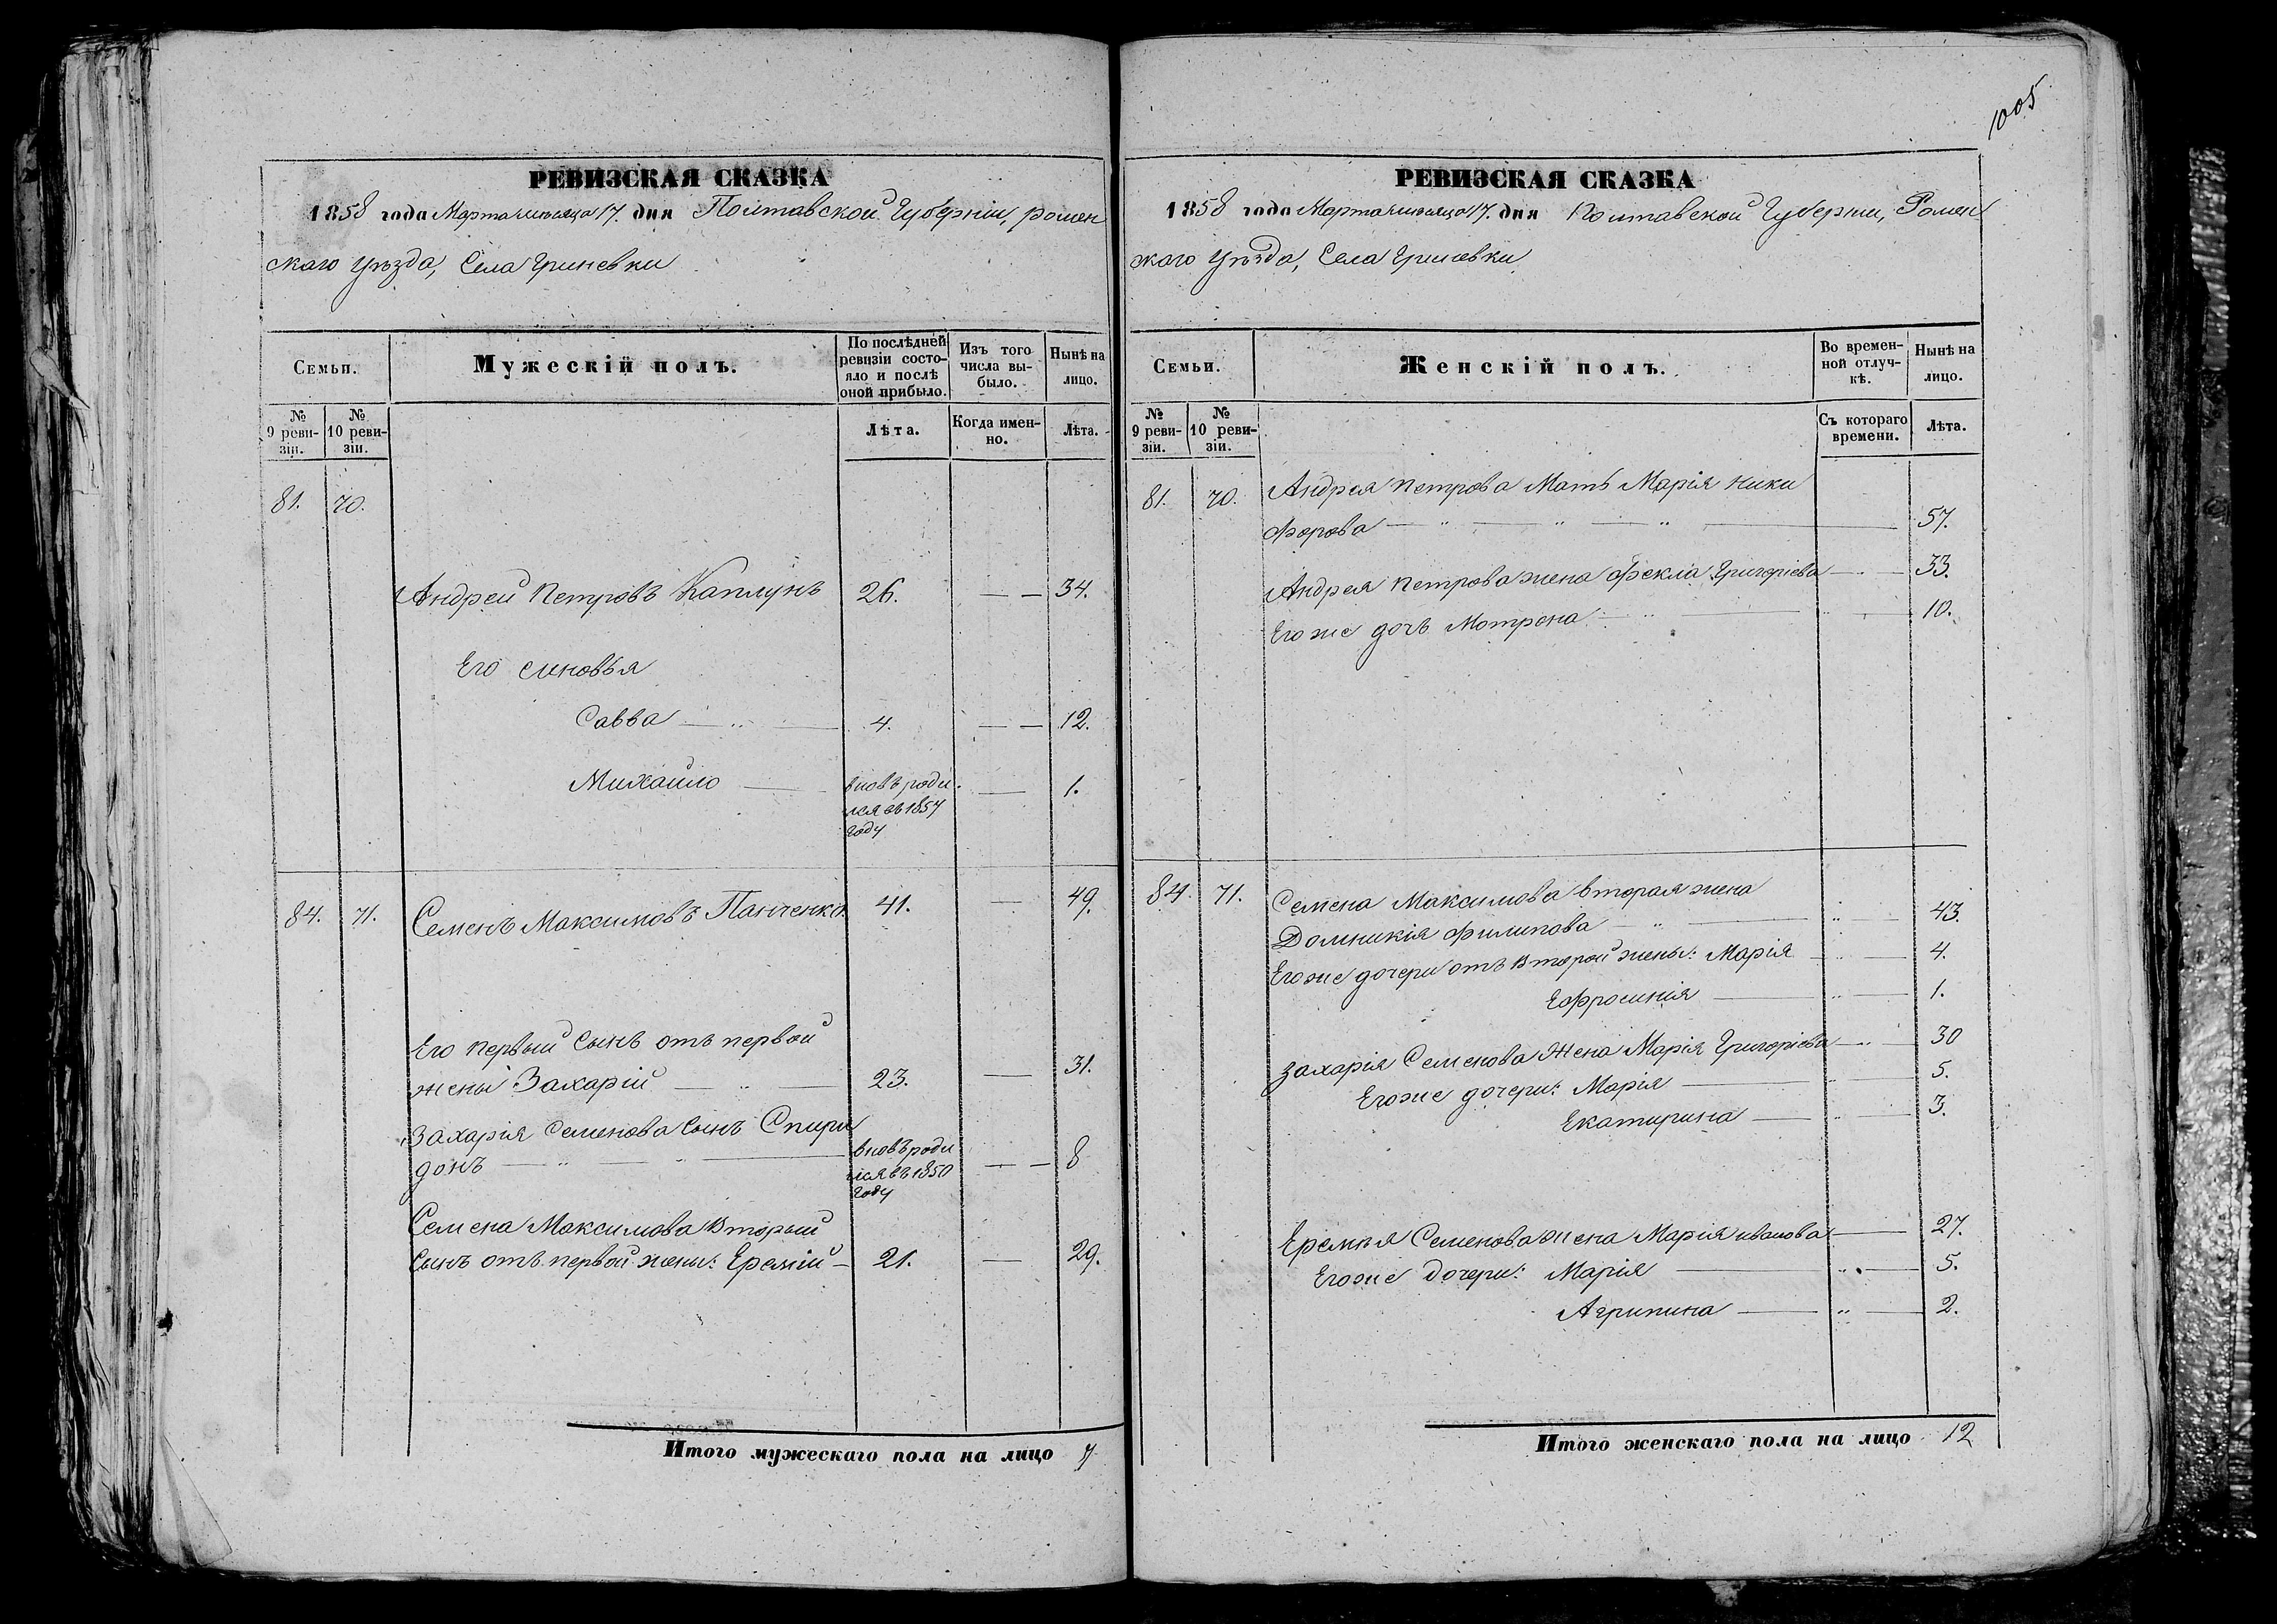 РЕВИЗСКАЯ СКАЗКА
1858 года Марта месяца 17. дня Полтавской Губерніи, ромен
скаго уѣзда, Села Гриневки
Семьи.
Мужескій полъ.
По послѣдней ревизіи состояло и послѣ оной прибыло.
Изъ того числа выбыло.
Нынѣ на лицо.
№ 9 ревизіи.
№ 10 ревизіи.
Лѣта.
Когда именно.
Лѣта.
81. 70.
Андрей Петровъ Каплунъ 26. — — 34.
Его синовья
Савва — „ — 4. — — 12.
Михайло — вновь роди — 1.
лся въ 1857
году
84. 71. Семенъ Максимовъ Панченко. 41. — 49.
Его первый сынъ отъ первой
жены Захарій — „ — 23. — 31.
Захарія Семенова сынъ Спири
донъ — „ — „ — вновь роди — — 8
лся въ 1850
году
Семена Максимова Вторый
сынъ отъ первой жены: Еремій — 21. — 29.
Итого мужескаго пола на лицо 7
1005
РЕВИЗСКАЯ СКАЗКА
1858 года Марта месяца 17. дня Полтавской Губернии, Ромен
скаго уѣзда, Села Гриневки
Семьи.
Женскій полъ.
Во временной отлучкѣ.
Нынѣ на лицо.
№ 9 ревизіи.
№ 10 ревизіи.
Съ котораго времени.
Лѣта.
81. 70. Андрея Петрова Мать Марія Ники
форова — „ — „ — „ — 57.
Андрея Петрова жена Фекла Григоріева — — 33.
Егоже дочь Мотрона — „ — „ — 10.
84. 71. Семена Максимова вторая жена
Домникія Филипова — „ — „ — 43.
Егоже дочери отъ Второй жены: Марія — „ — 4.
Ефросинія — „ — 1.
Захарія Семенова Жена Марія Григоріева — „ — 30
Егоже дочери: Марія — „ — 5.
Екатирина — „ — 3.
Еремія Семенова жена Марія иванова — 27.
Егоже Дочери: Марія — „ — 5.
Агрипина — „ — 2.
Итого женскаго пола на лицо 12